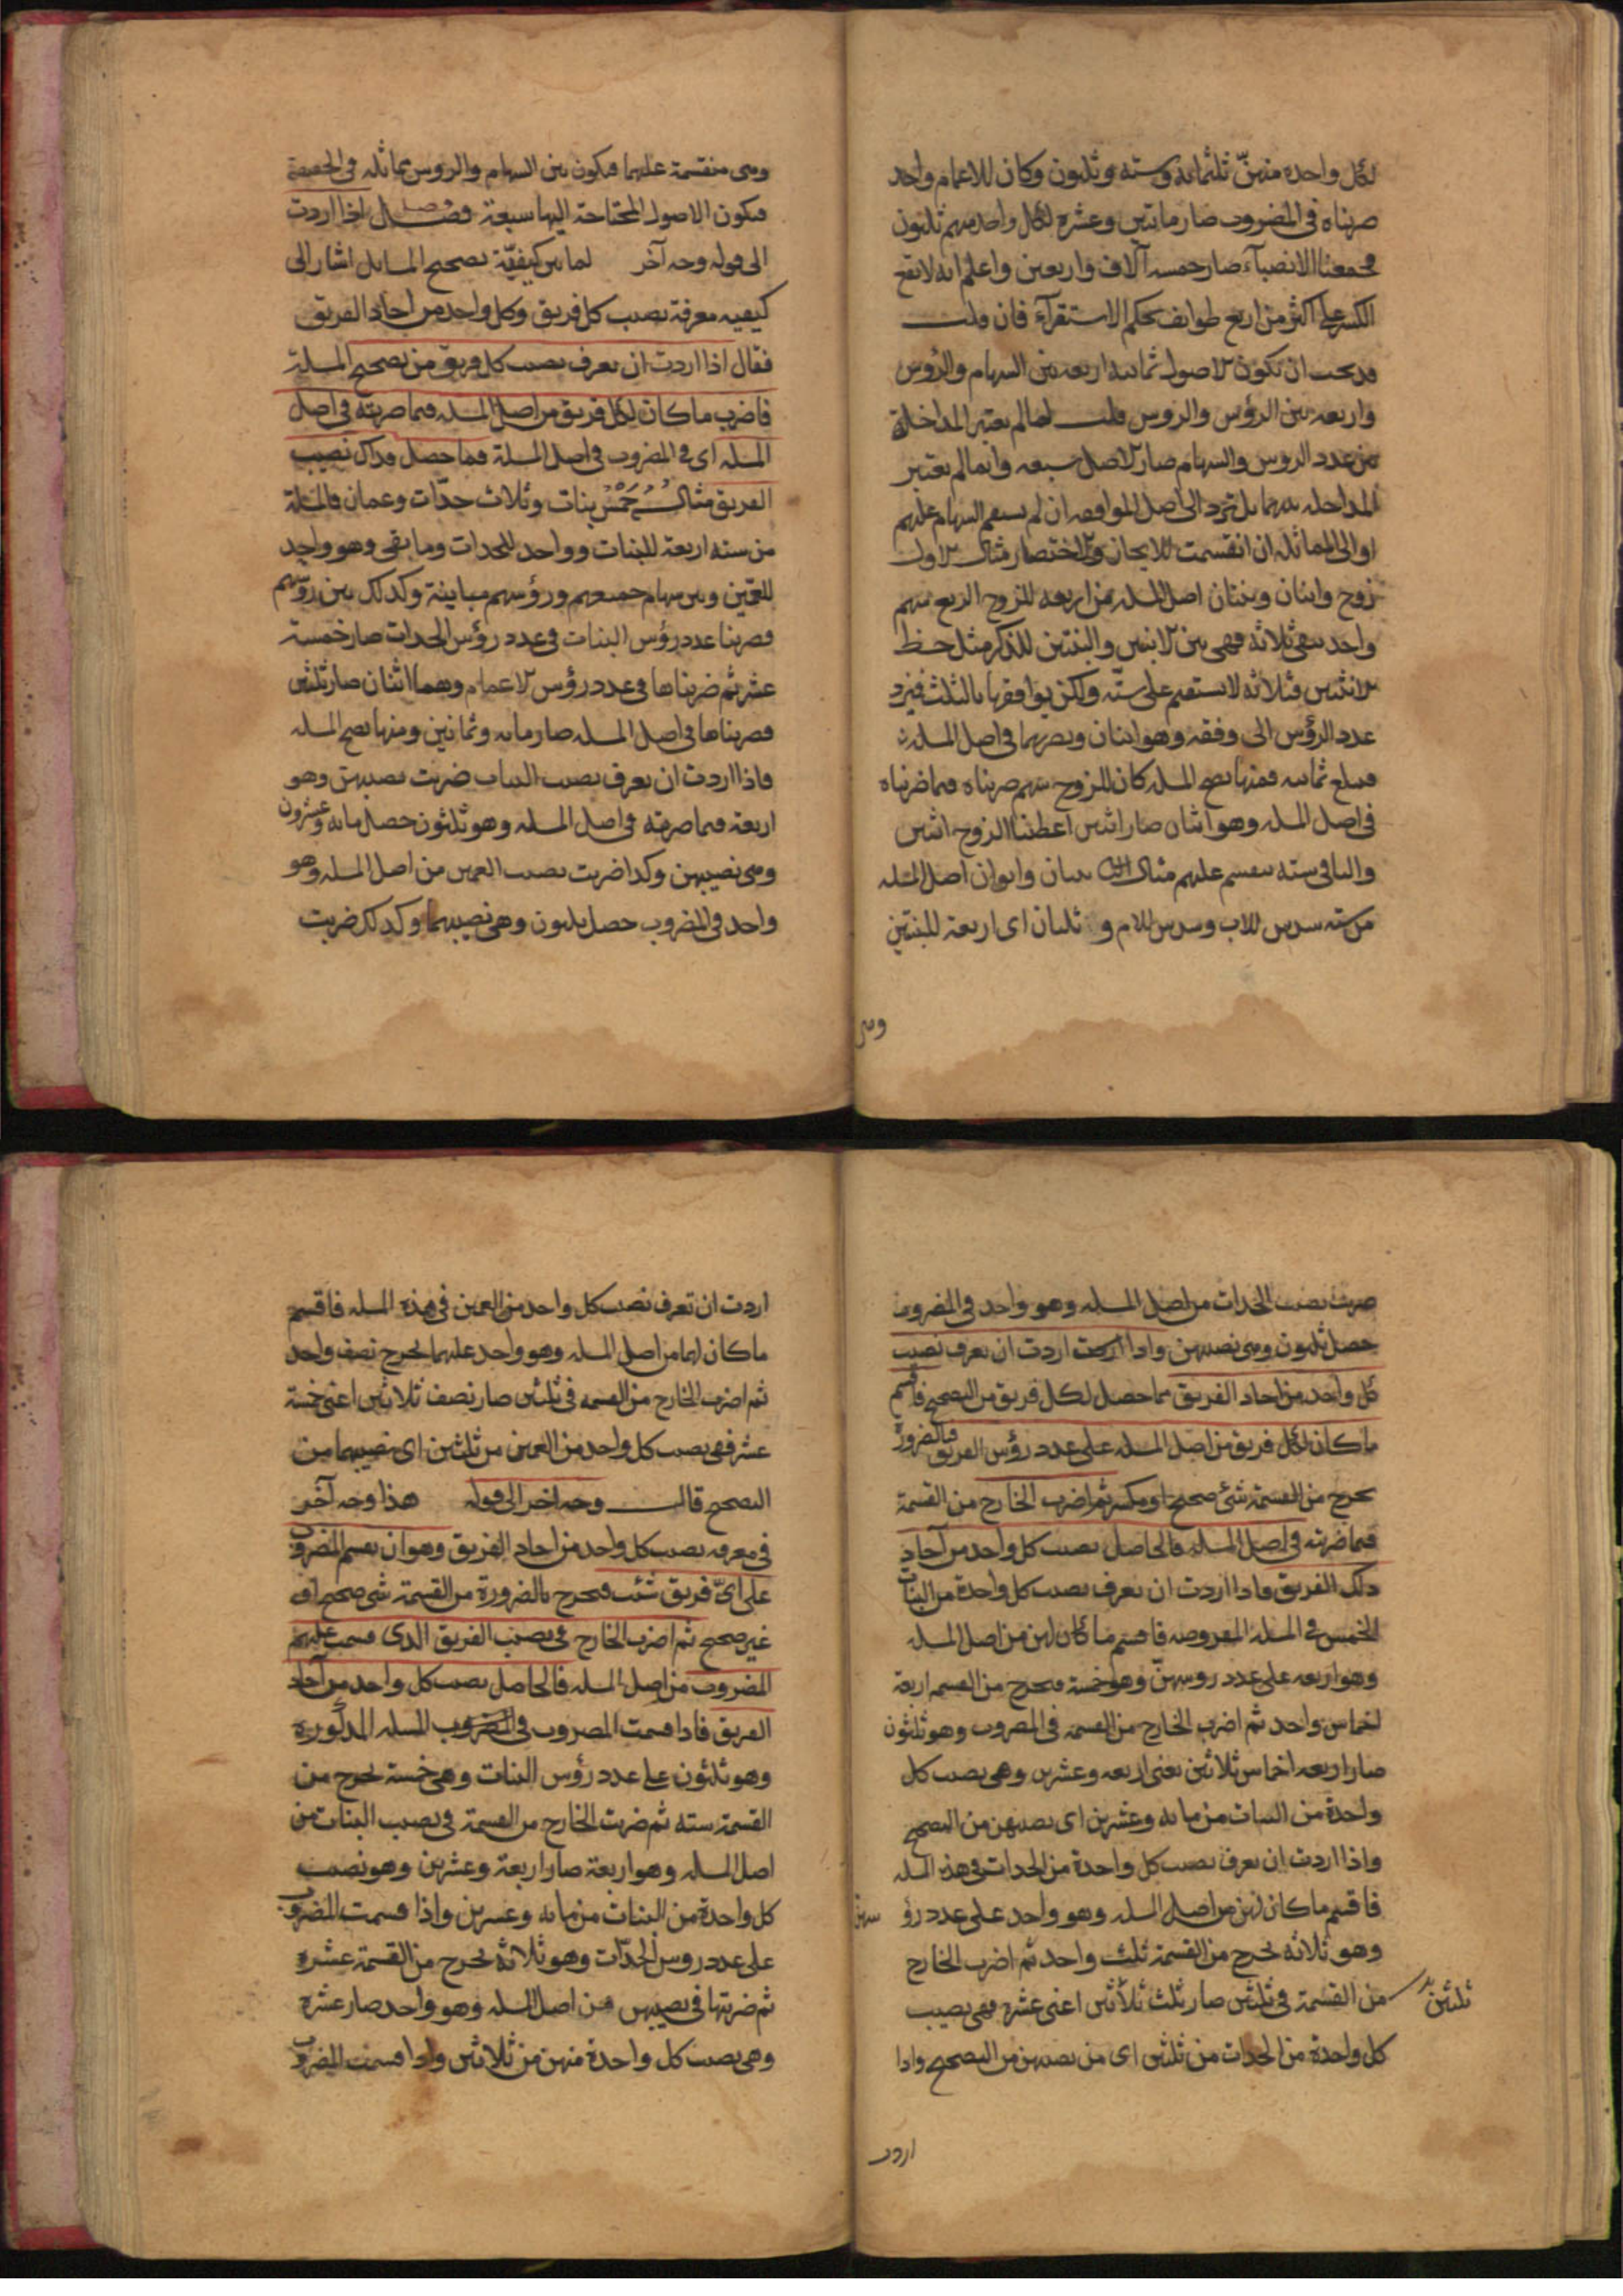 لكل واحدة منهنّ ثلثمائة وستة وثلثون وكان للاعمام واحد
ضربناه فى المضروب صار مايتين وعشرة لكل واحد منهم ثلثون
فجمعنا الانصباء صار خمسه آلاف واربعين واعلم انه لا تقع
الكسر على اكثر من اربع طوايف بحكم الاستقرآء فان قلت
قد يجب ان تكون الاصول ثمانيه اربعه بين السهام والرؤس
واربعه بين الرؤس والروس قلت لما لم يعتبر المداخلة
بين عدد الروس والسهام صار الاصل سبعه وانما لم يعتبر
المداخله بينهما بل ترد الى اصل الموافقه ان لم يستقم السهام عليهم
او الى المماثله ان انقسمت للايجاز والاختصار مثال الاول
زوج وابنان وبنتان اصل المسله من اربعه للزوج الربع سهم
واحد بقى ثلاثة فهى بين الابنين والبنتين للذكر مثل حظ
الانثيين فثلاثه لا يستقيم على ستّه ولكن يوافقها بالثلث فيرد
عدد الرؤس الى وفقه وهو اثنان ويضربهما فى اصل المسله
فبلغ ثمانيه فمنها تصح المسله كان للزوج سهم ضربناه فيما ضربناه
فى اصل المسله وهو اثنان صار اثنين اعطينا الزوج اثنين
والباقى سته ينقسم عليهم مثال الثانى بنتان وابوان اصل المسله
من سته سدس للاب وسدس للام و ثلثان اى اربعة للبنتين
وهى
وهى منقسمة عليهما فيكون بين السهام والروس مماثلة فى الحقيقة
فيكون الاصول المحتاجة اليها سبعة فصل فصل اذا اردت
الى قوله وجه آخر لما بين كيفيّة تصحيح المسايل اشار الى
كيفيه معرفة نصيب كل فريق وكل واحد من احاد الفريق
فقال اذا اردت ان تعرف نصيب كل فريق من تصحيح المسلة
فاضرب ما كان لكل فريق من اصل المسله فيما ضربته فى اصل
المسله اى فى المضروب فى اصل المسلة فما حصل فذاك نصيب
الفريق مثاله خمس بنات وثلاث جدّات وعمان فالمسلة
من ستة اربعة للبنات وواحد للجدات وما بقى وهو واحد
للعمّين وبين سهام جميعهم ورؤسهم مباينة وكذلك بين رؤسهم
فضربنا عدد رؤس البنات فى عدد رؤس الجدات صار خمسة
عشر ثم ضربناها فى عدد رؤس الاعمام وهما اثنان صار ثلثين
فضربناها فى اصل المسله صار مايه وثمانين ومنها تصح المسله
فاذا اردت ان تعرف نصيب البنات ضربت نصيبهن وهو
اربعة فيما ضربته فى اصل المسله وهو ثلثون حصل مايه وعشرون
وهى نصيبهن وكذا ضربت نصيب العمين من اصل المسله وهو
واحد فى المضروب حصل ثلثون وهى نصيبهما وكذلك ضربت
ضربت نصيب الجدات من اصل المسله وهو واحد فى المضروب
حصل ثلثون وهى نصيبهن واذا اردت ان تعرف نصيب
كل واحد من احاد الفريق مما حصل لكل فريق من التصحيح فاقسم
ما كان لكل فريق من اصل المسله على عدد رؤس الفريق فبالضرورة
يخرج من القسمة شئ صحيح او مكسر ثم اضرب الخارج من القسمة
فيما ضربته فى اصل المسله فالحاصل نصيب كل واحد من آحاد
ذلك الفريق فاذا اردت ان تعرف نصيب كل واحدة من البنات
الخمس فى المسله المفروضه فاقسم ما كان لهن من اصل المسله
وهو اربعه على عدد روسهنّ وهو خمسة فيخرج من القسم اربعة
اخماس واحد ثم اضرب الخارج من القسمه فى المضروب وهو ثلثون
صار اربعه اخماس ثلاثين يعنى اربعه وعشرين وهى نصيب كل
واحدة من البنات من مايه وعشرين اى نصيبهن من التصحيح
واذا اردت ان تعرف نصيب كل واحدة من الجدات فى هذه المسله
فاقسم ما كان لهن من اصل المسله وهو واحد على عدد رؤ سهن
وهو ثلاثة يخرج من القسمة ثلث واحد ثم اضرب الخارج
من القسمة فى ثلثين صار ثلث ثلاثين اعنى عشره فهى نصيب
ثلثين
كل واحدة من الجدات من ثلثين اى من نصيبهن من التصحيح واذا
اردت
اردت ان تعرف نصيب كل واحد من العمين فى هذه المسله فاقسم
ما كان لهما من اصل المسله وهو واحد عليهما يخرج نصف واحد
ثم اضرب الخارج من القسمه فى ثلثين صار نصف ثلاثين اعنى خمسة
عشر فهى نصيب كل واحد من العمين من ثلثين اى نصيبهما من
التصحيح قال وجه اخر الى قوله هذا وجه آخر
فى معرفه نصيب كل واحد من احاد الفريق وهو ان تقسم المضروب
على اىّ فريق شئت فيخرج بالضرورة من القسمة شى صحيح او
غير صحيح ثم اضرب الخارج فى نصيب الفريق الذى قسمت عليهم
المضروب من اصل المسله فالحاصل نصيب كل واحد من آحاد
الفريق فاذا قسمت المضروب فى المضروب المسله المذكورة
وهو ثلثون على عدد رؤس البنات وهى خمسة يخرج من
القسمة سته ثم ضربت الخارج من القسمة فى نصيب البنات من
اصل المسله وهو اربعة صار اربعة وعشرين وهو نصيب
كل واحدة من البنات من مايه وعشرين واذا قسمت المضروب
على عدد روس الجدّات وهو ثلاثة يخرج من القسمة عشرة
ثم ضربتها فى نصيبهن من اصل المسله وهو واحد صار عشرة
وهى نصيب كل واحدة منهن من ثلاثين واذا قسمت المضروب